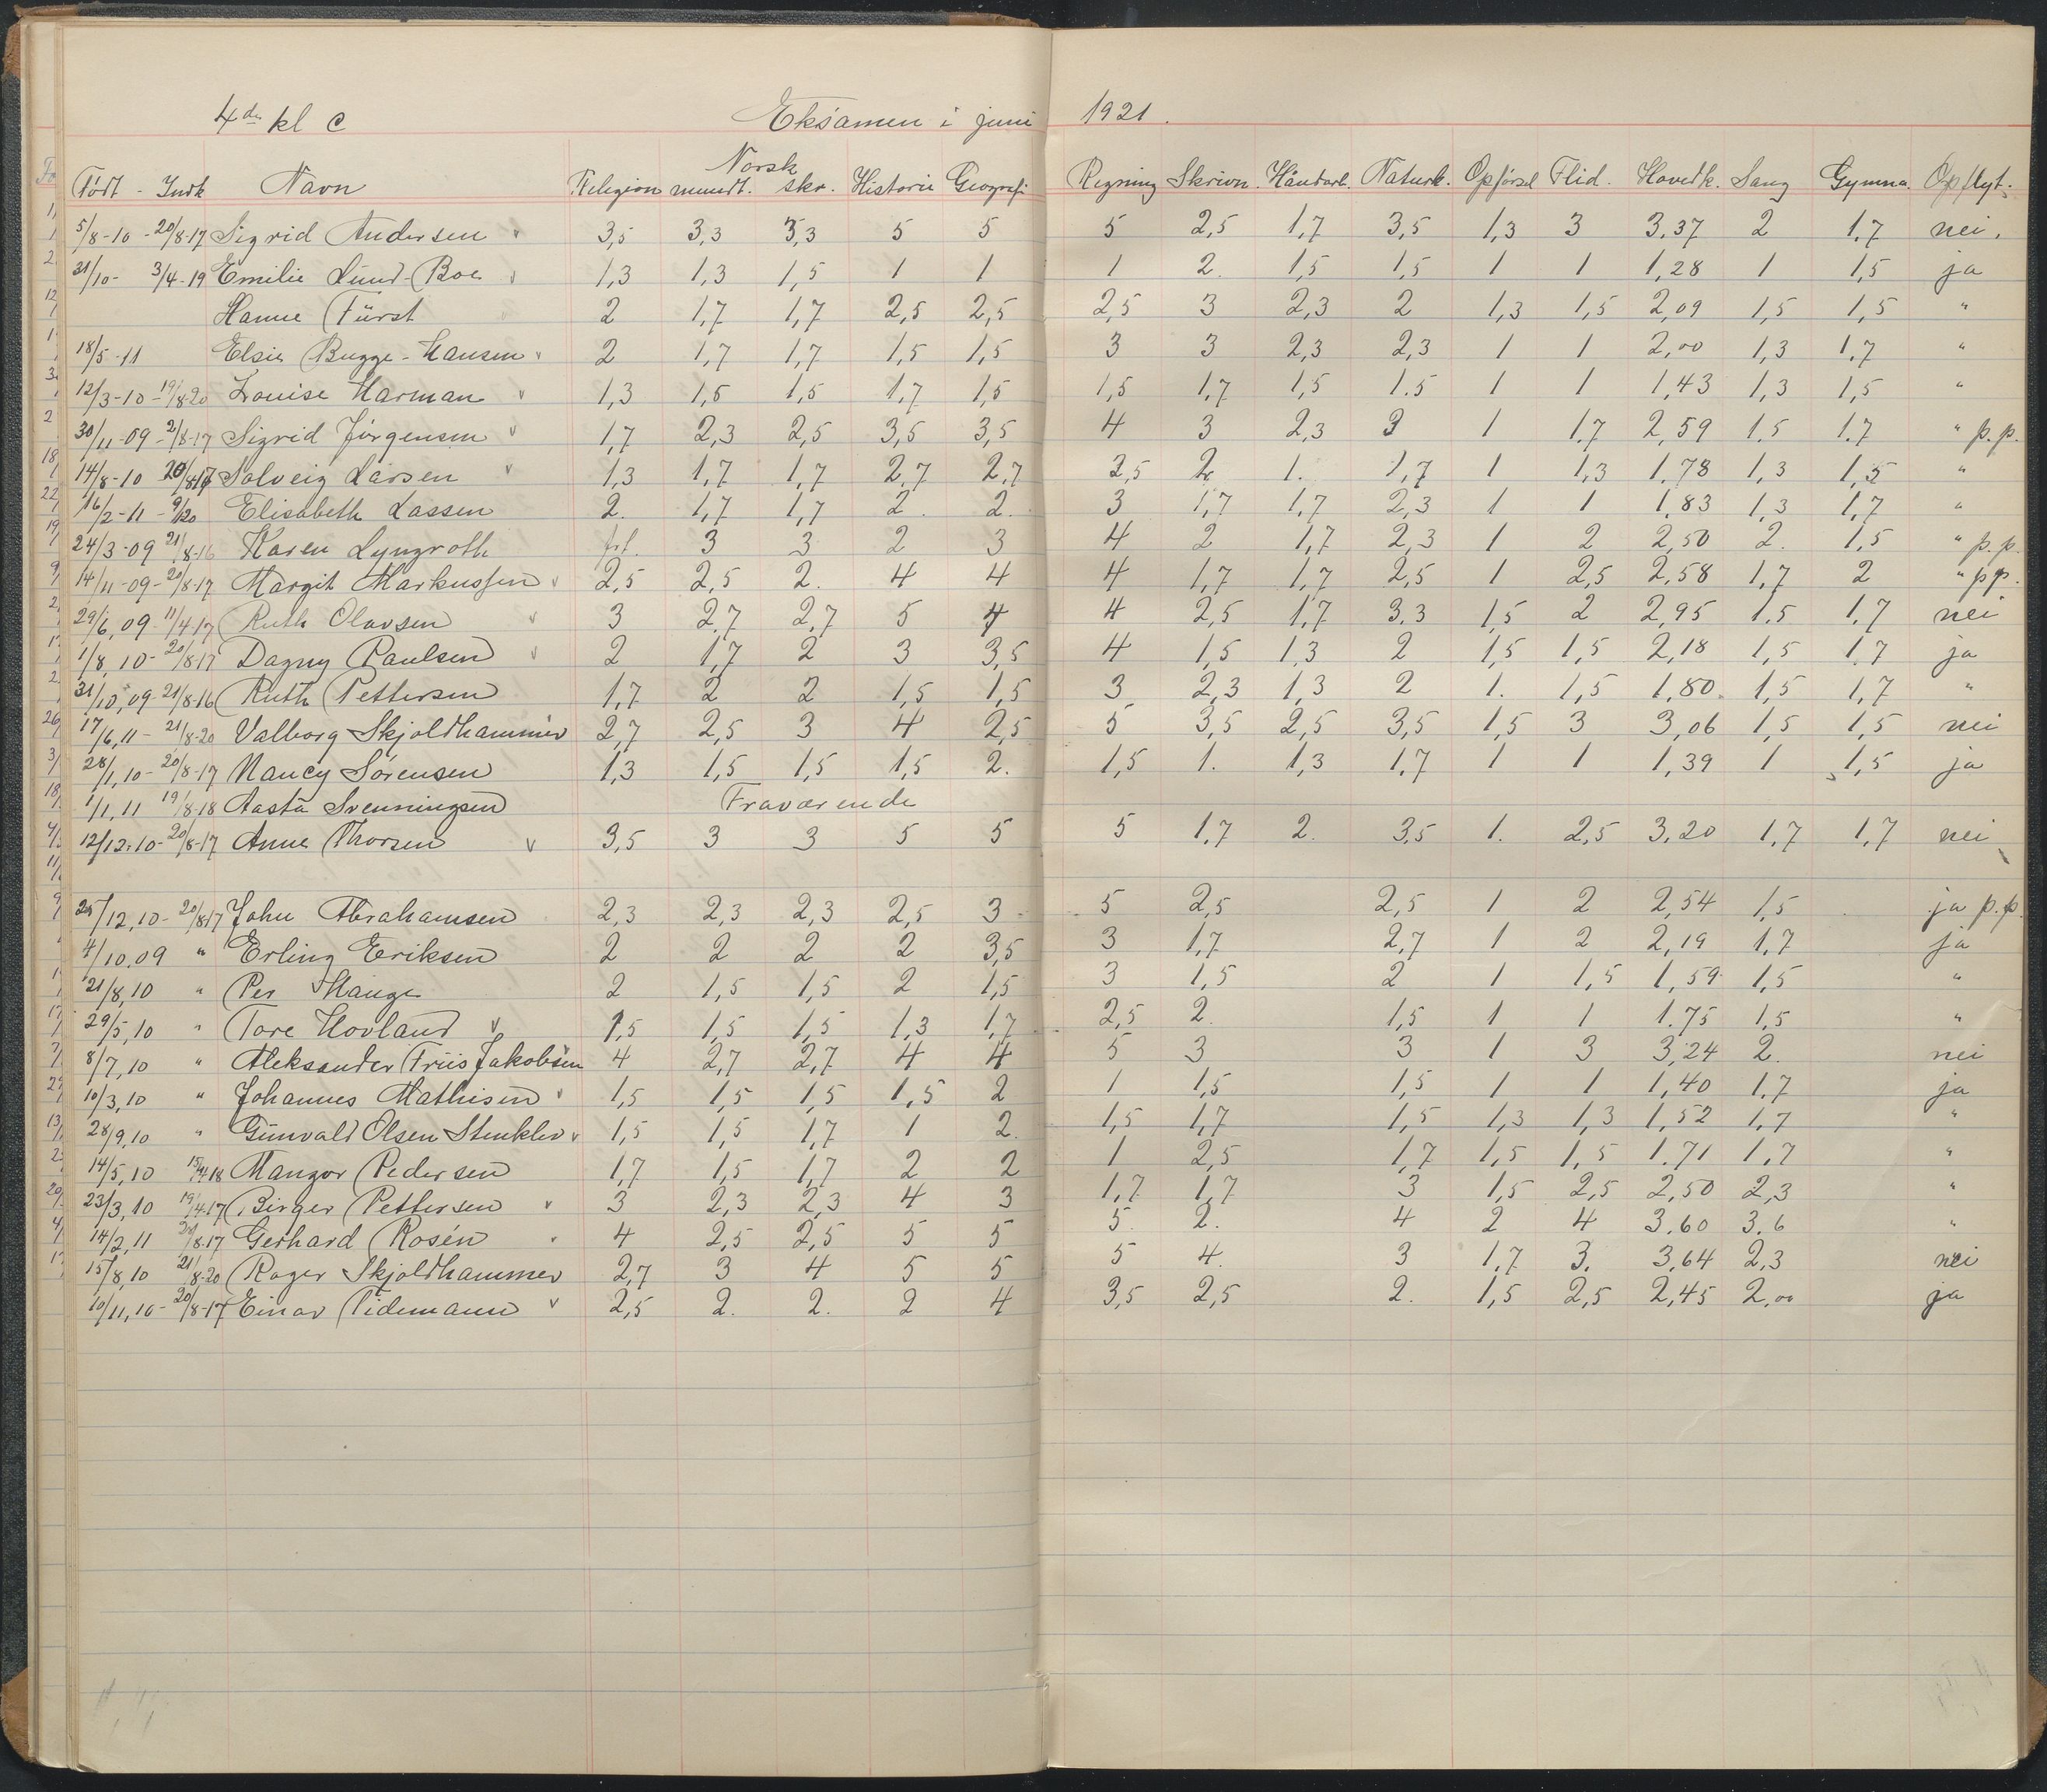 4de kl C Eksamen i juni 1921.
Født - Indk Navn Religion Norsk mundt. skr. Historie Geografi Regning Skrivn. Håndarb. Naturk. Opførsel Flid. Hovedk. Sang Gymna. Opflyt.
5/8-10 - 20/8-17 Sigrid Andersen v 3,5 3,3 3,3 5 5 5 2,5 1,7 3,5 1,3 3 3,37 2 1,7 nei.
21/10- 3/4-19 Emilie Lund-Boe v 1,3 1,3 1,5 1 1 1 2. 1,5 1,5 1 1 1,28 1 1,5 ja
Hanne Fürst 2 1,7 1,7 2,5 2,5 2,5 3 2,3 2 1,3 1,5 2,09 1,5 1,5 "
18/5-11 Elsie Bugge-Hansen v 2 1,7 1,7 1,5 1,5 3 3 2,3 2,3 1 1 2,00 1,3 1,7 "
12/3-10 - 19/8-20 Louise Harman v 1,3 1,5 1,5 1,7 1,5 1,5 1,7 1,5 1.5 1 1 1,43 1,3 1,5 "
30/11-09 - 21/8-17 Sigrid Jørgensen v 1,7 2,3 2,5 3,5 3,5 4 3 2,3 3 1 1,7 2,59 1,5 1,7 " p.p.
14/8-10 20/8-17 Solveig Larsen v 1,3 1,7 1,7 2,7 2,7 2,5 2 1. 1,7 1 1,3 1,78 1,3 1,5 "
16/2-11 - 9/1-20 Elisabeth Lassen 2. 1,7 1,7 2. 2. 3 1,7 1,7 2,3 1 1 1,83 1,3 1,7 "
24/3-09 21/8-16 Karen Lyngroth frt. 3 3 2 3 4 2 1,7 2,3 1 2 2,50 2. 1,5 " p.p.
14/11-09 - 20/8-17 Margit Markussen v 2,5 2,5 2. 4 4 4 1,7 1,7 2,5 1 2,5 2,58 1,7 2 " p.p.
29/6,09 - 11/4-17 Ruth Olavsen v 3 2,7 2,7 5 4 4 2,5 1,7 3,3 1,5 2 2,95 1,5 1,7 nei
1/8,10 - 20/8-17 Dagny Paulsen v 2 1,7 2 3 3,5 4 1,5 1,3 2 1,5 1,5 2,18 1,5 1,7 ja
31/10,09 - 21/8-16 Ruth Pettersen 1,7 2 2 1,5 1,5 3 2,3 1,3 2 1. 1,5 1,80 1,5 1,7 "
17/6,11 - 21/8-20 Valborg Skjoldhammer 2,7 2,5 3 4 2,5 5 3,5 2,5 3,5 1,5 3 3,06 1,5 1,5 nei
28/1,10 - 20/8-17 Nancy Sørensen 1,3 1,5 1,5 1,5 2. 1,5 1. 1,3 1,7 1 1 1,39 1 1,5 ja
1/1,11 19/8-18 Aasta Svenningsen Fraværende
12/12,10 - 20/8-17 Anne Thorsen v 3,5 3 3 5 5 5 1,7 2. 3,5 1. 2,5 3,20 1,7 1,7 nei
25/12,10 - 20/8-17 John Abrahamsen 2,3 2,3 2,3 2,5 3 5 2,5 2,5 1 2 2,54 1,5 ja p.p.
4/10,09 " Erling Eriksen 2 2 2 2 3,5 3 1,7 2,7 1 2 2,19 1,7 ja
21/8,10 " Per Hauge 2 1,5 1,5 2 1,5 3 1,5 2 1 1,5 1,59 1,5 "
29/5,10 " Tore Hovland v 1,5 1,5 1,5 1,3 1,7 2,5 2. 1,5 1 1 1.75 1,5 "
8/7,10 " Aleksander Friis Jakobsen 4 2,7 2,7 4 4 5 3 3 1 3 3,24 2. nei
10/3,10 " Johannes Mathisen v 1,5 1,5 1,5 1,5 2 1 1,5 1,5 1 1 1,40 1,7 ja
28/9,10 " Gunvald Olsen Stenklev v 1,5 1,5 1,7 1 2. 1,5 1,7 1,5 1,3 1,3 1,52 1,7 "
14/5,10 15/4-18 Mangor Pedersen 1,7 1,5 1,7 2 2 1 2,5 1,7 1,5 1,5 1.71 1,7 "
23/3,10 19/4-17 Birger Pettersen v 3 2,3 2,3 4 3 1,7 1,7 3 1,5 2,5 2,50 2,3 "
14/2,11 20/8-17 Gerhard Rosén 4 2,5 2,5 5 5 5. 2. 4 2 4 3,60 3,6 "
15/8,10 21/8-20 Roger Skjoldhammer 2,7 3 4 5 5 5 4. 3 1,7 3. 3,64 2,3 nei
10/11,10 - 20/8-17 Einar Tidemann v 2,5 2. 2. 2 4 3,5 2,5 2. 1,5 2,5 2,45 2,00 ja